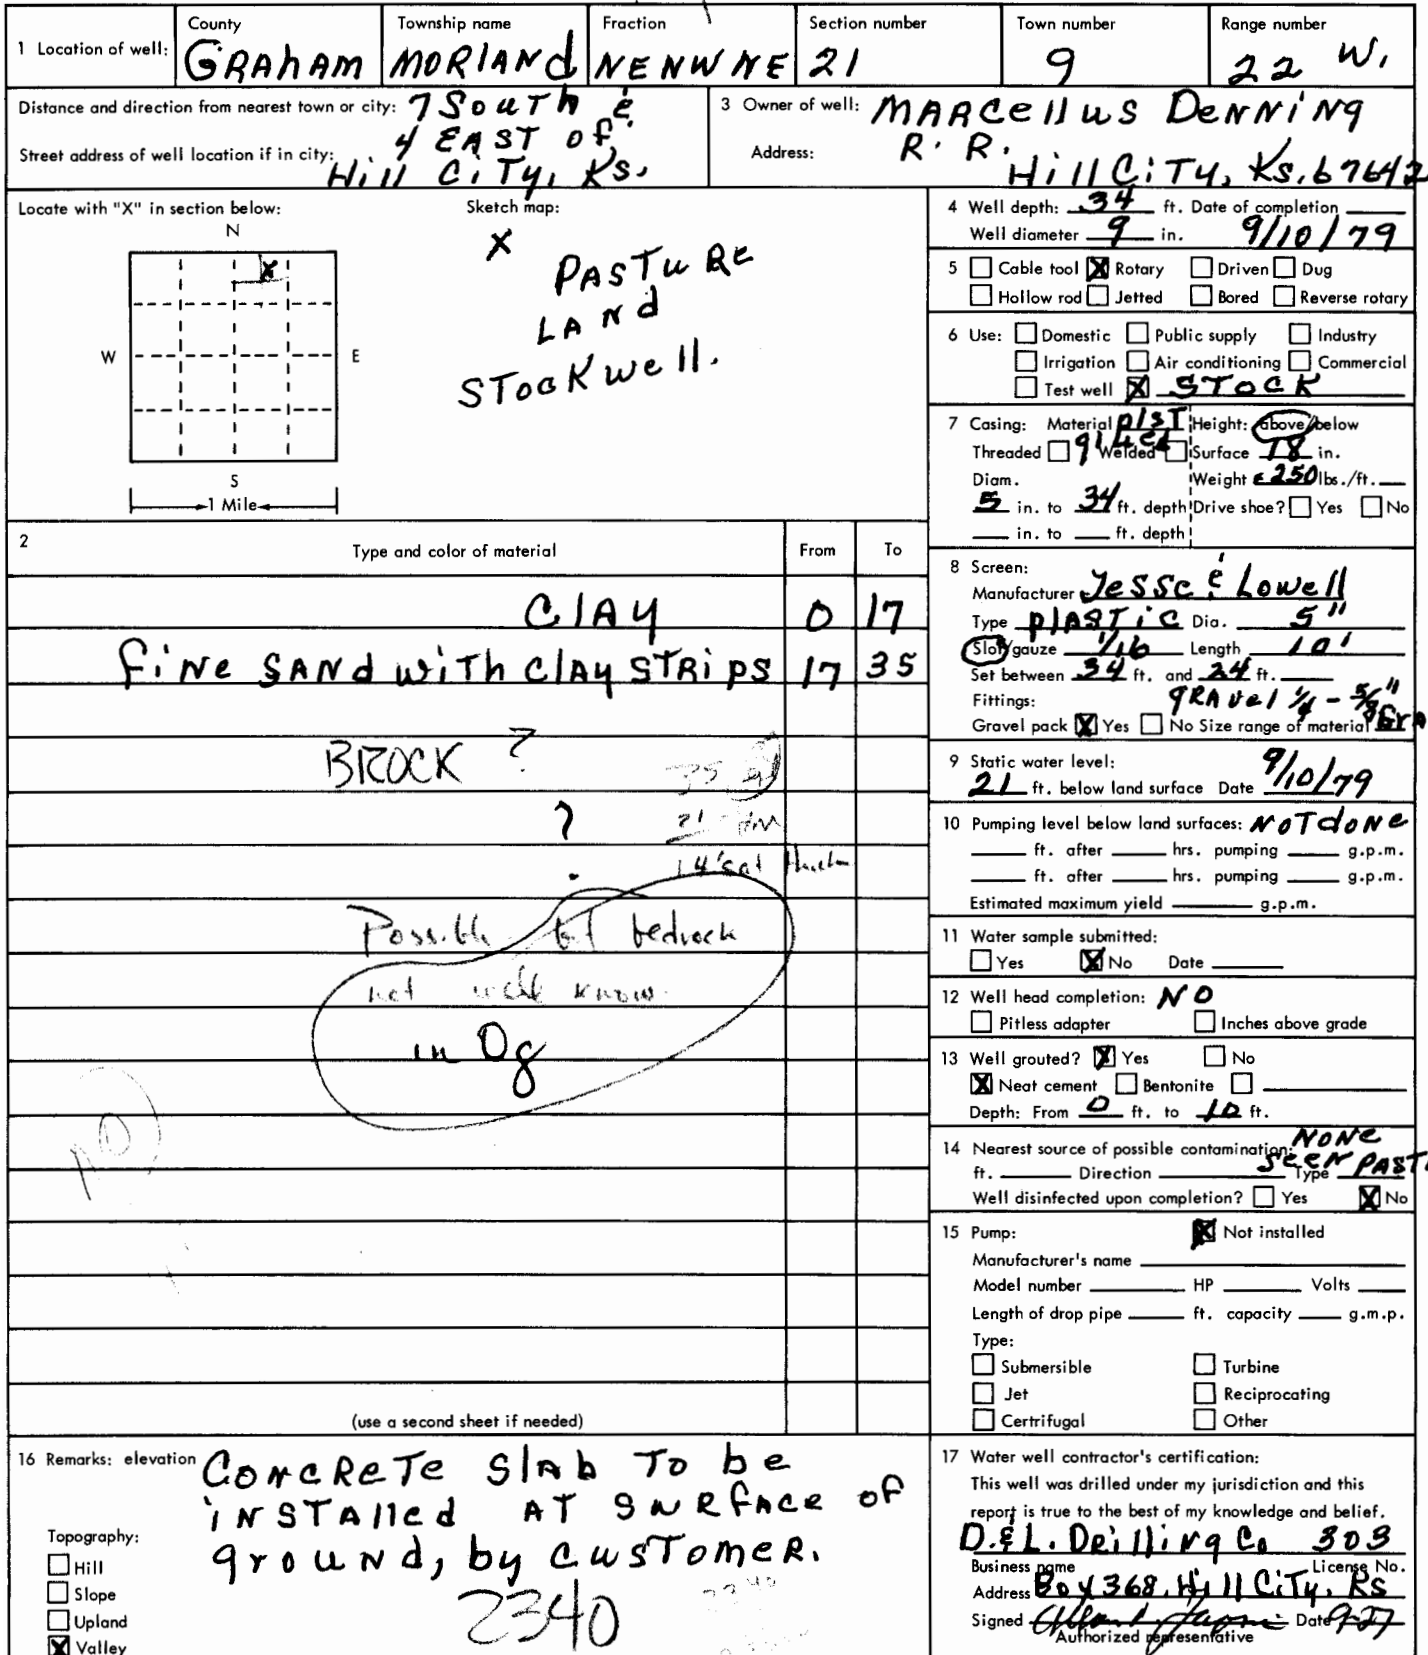 1 Location of well: County Township name Fraction Section number Town number Range number
GRAHAM MORlANd NENWNE 21 9 22 W.
Distance and direction from nearest town or city: 7 South &
4 EAST of
Street address of well location if in city: Hill CiTy, Ks.
3 Owner of well: MARCellus DeNNiNg
Address: R. R.
Hill CiTy, Ks. 67642
Locate with "X" in section below:
N
X
W E
S
1 Mile
Sketch map:
X
PASTuRe
LANd
STockwell.
4 Well depth: 34 ft. Date of completion
Well diameter 9 in. 9/10/79
5 Cable tool X Rotary Driven Dug
Hollow rod Jetted Bored Reverse rotary
6 Use: Domestic Public supply Industry
Irrigation Air conditioning Commercial
Test well X STOCK
7 Casing: Material plST Height: above/below
Threaded glued Welded Surface 18 in.
Diam. Weight .250 lbs./ft.
5 in. to 34 ft. depth Drive shoe? Yes No
in. to ft. depth
2 Type and color of material From To
ClAY 0 17
fiNe SANd with ClAy STRipS 17 35
BROCK ?
35
?
21
14' sat thick
Possible bedrock
not well know
in Og
8 Screen:
Manufacturer Jesse & Lowell
Type plASTiC Dia. 5"
Slot/gauze 1/16 Length 10'
Set between 34 ft. and 24 ft.
Fittings: gRAvel 1/4 - 5/8"
Gravel pack X Yes No Size range of material GrA
9 Static water level: 9/10/79
21 ft. below land surface Date
10 Pumping level below land surfaces: NoT doNe
ft. after hrs. pumping g.p.m.
ft. after hrs. pumping g.p.m.
Estimated maximum yield g.p.m.
11 Water sample submitted:
Yes X No Date
12 Well head completion: NO
Pitless adapter Inches above grade
13 Well grouted? X Yes No
X Neat cement Bentonite
Depth: From 0 ft. to 10 ft.
14 Nearest source of possible contamination: NoNe
ft. Direction SeeN Type PAST
Well disinfected upon completion? Yes X No
15 Pump: X Not installed
Manufacturer's name
Model number HP Volts
Length of drop pipe ft. capacity g.m.p.
Type:
Submersible Turbine
Jet Reciprocating
Certrifugal Other
(use a second sheet if needed)
16 Remarks: elevation CoNcReTe SlAb To be
iNSTAlled AT SuRfAce of
gRouNd, by CuSToMeR.
2340
2340
Topography:
Hill
Slope
Upland
X Valley
17 Water well contractor's certification:
This well was drilled under my jurisdiction and this
report is true to the best of my knowledge and belief.
D.&L. DRilliNg Co 303
Business name License No.
Address Box 368, Hill CiTy, Ks
Signed Date 9-27
Authorized representative